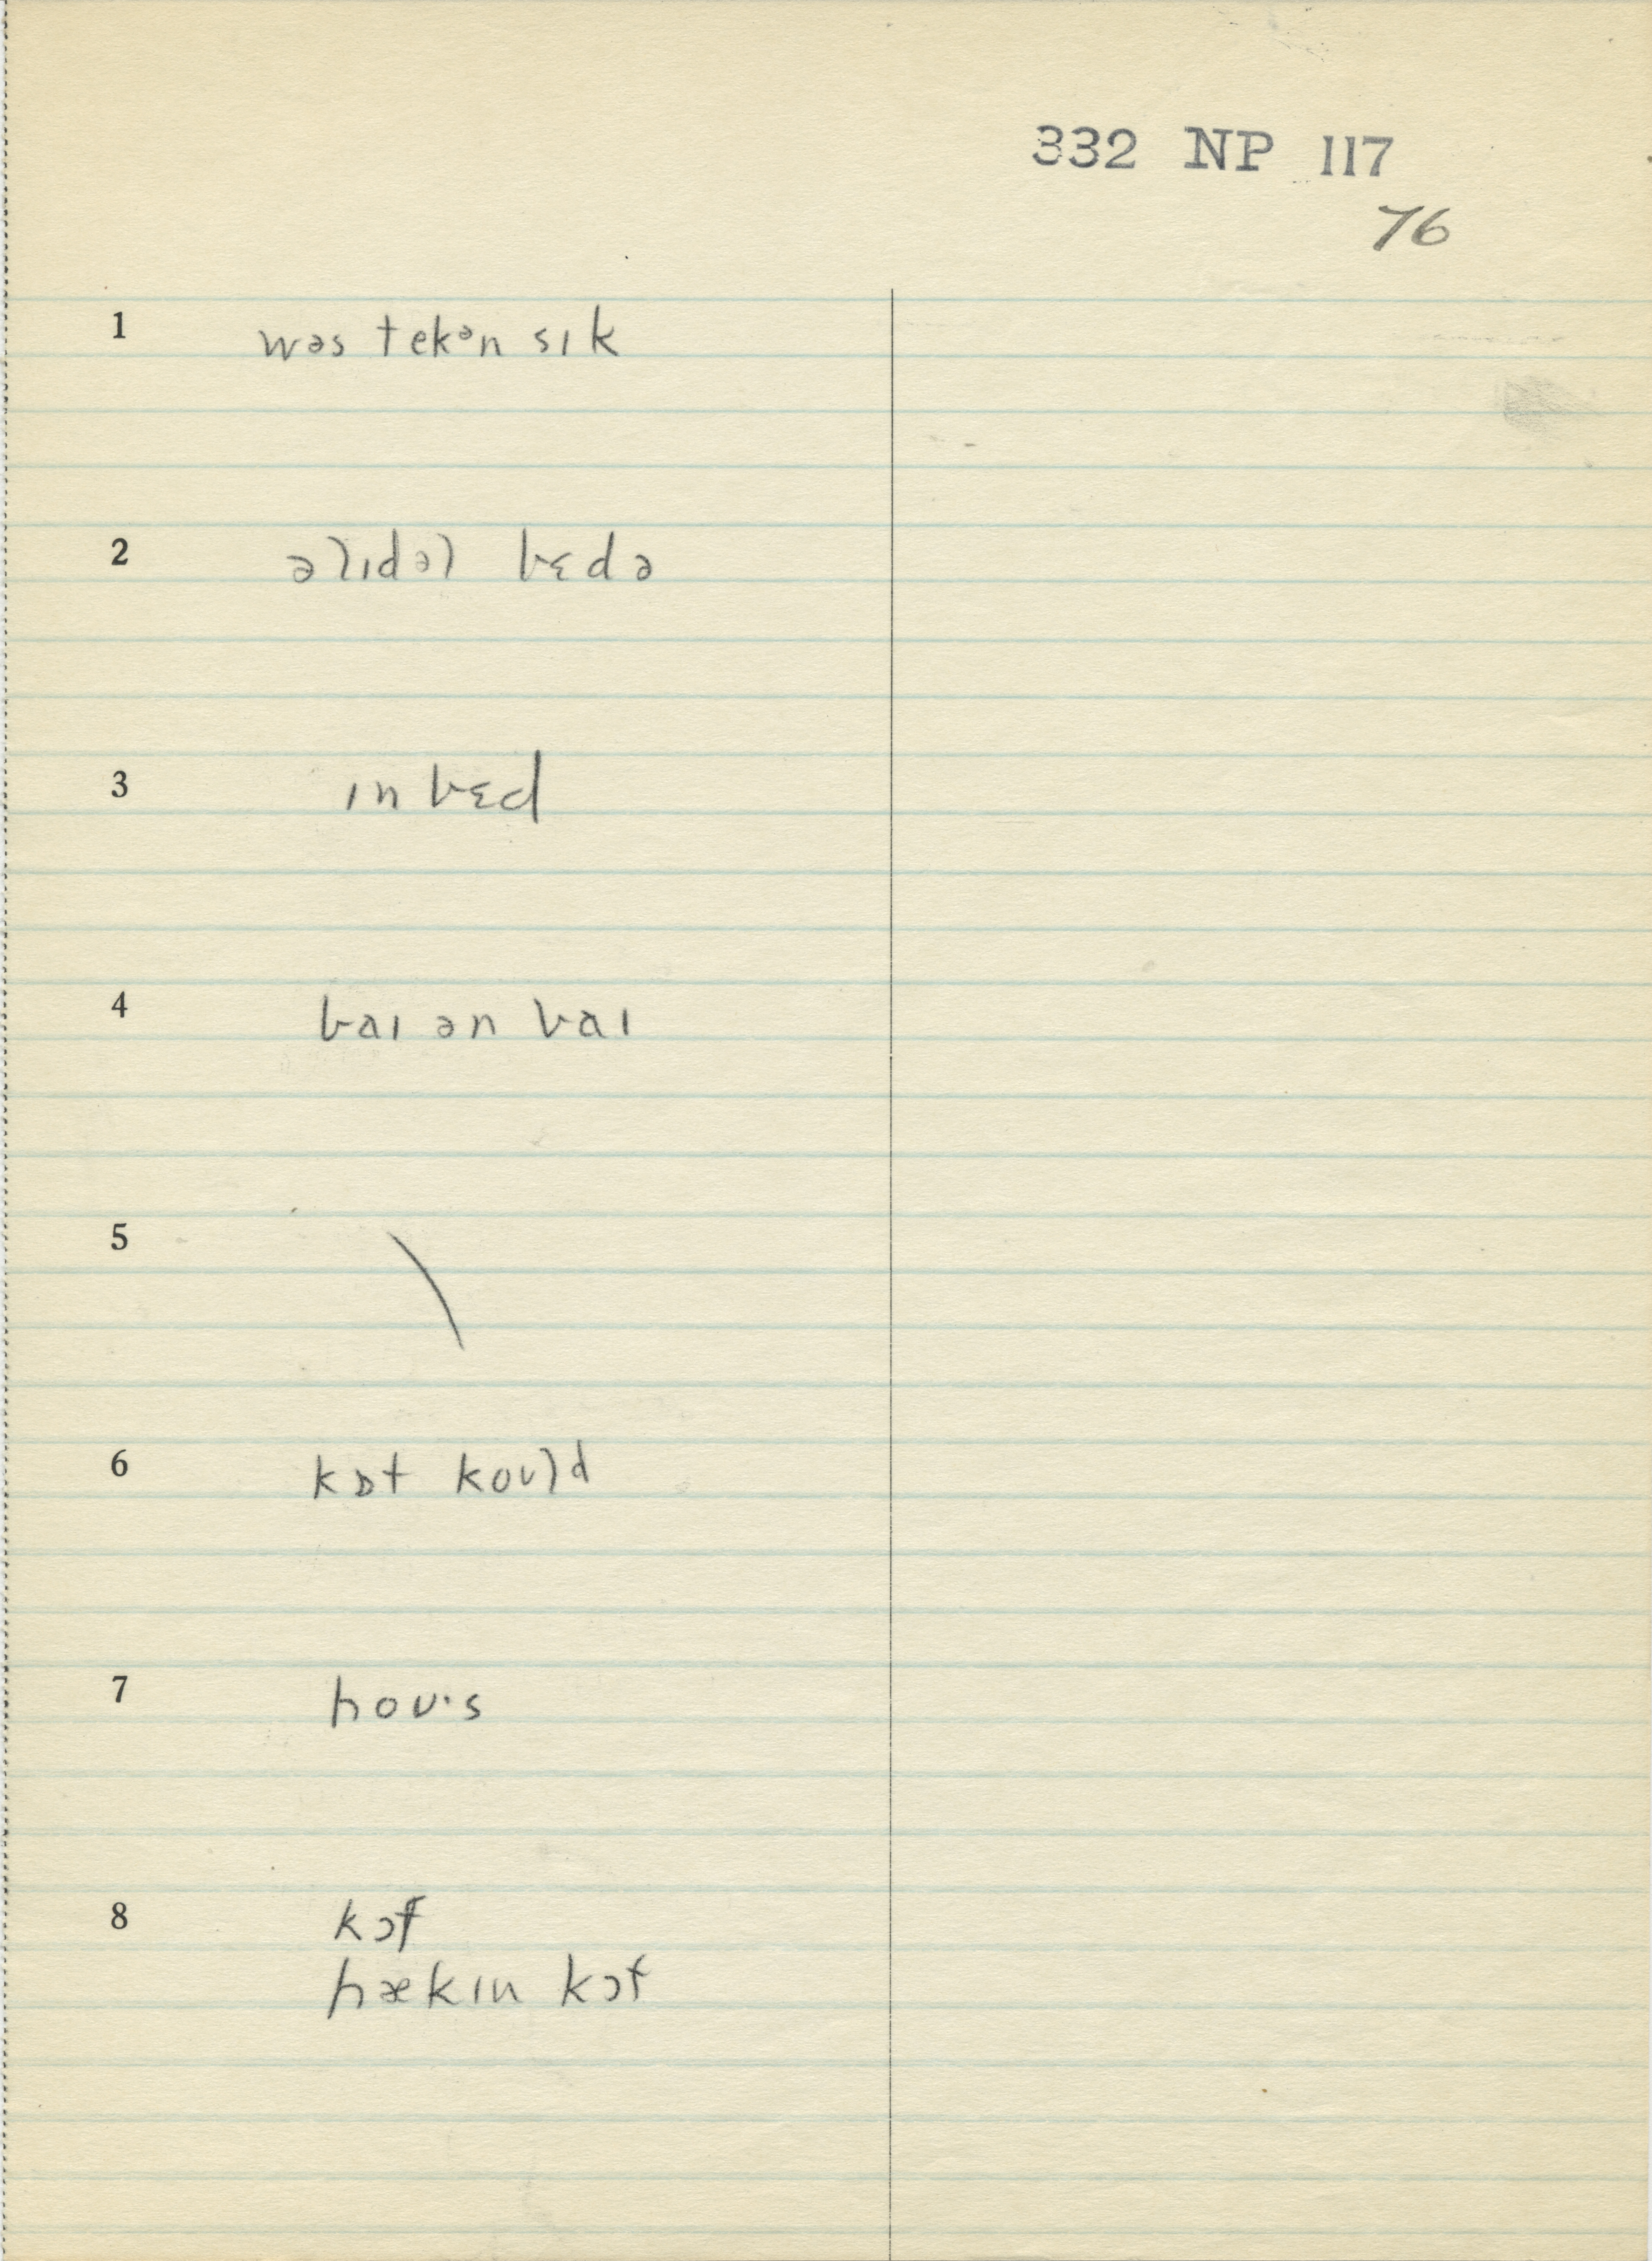 332 NP 117
76
1 wəs tekən sɪk
2 ə lɪdəl bɛdə
3 ɪn bɛd
4 baɪ ən baɪ
5 \
6 kɒt koʊld
7 hoʊ·s
8 kɔf
hækɪn kɔf